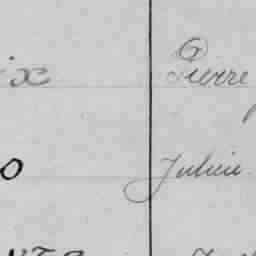 ix Pierre
o Julien